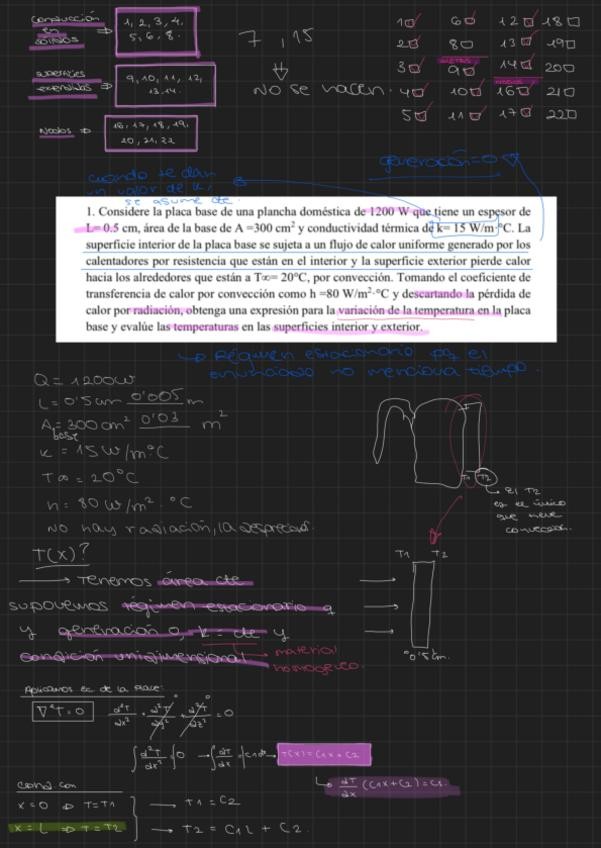 conducción en sólidos ⇒ 1, 2, 3, 4, 5, 6, 8.
superficies extendidas ⇒ 9, 10, 11, 12, 13, 14.
Nodos ⇒ 16, 17, 18, 19, 20, 21, 22
7, 15
⇓
NO se hacen.
1 6 12 18
2 8 13 19
3 9 14 20
4 10 16 21
5 11 17 22
generación = 0
cuando te dan un valor de k, se asume cte.
1. Considere la placa base de una plancha doméstica de 1200 W que tiene un espesor de
L= 0.5 cm, área de la base de A =300 cm² y conductividad térmica de k= 15 W/m·°C. La
superficie interior de la placa base se sujeta a un flujo de calor uniforme generado por los
calentadores por resistencia que están en el interior y la superficie exterior pierde calor
hacia los alrededores que están a T∞= 20°C, por convección. Tomando el coeficiente de
transferencia de calor por convección como h =80 W/m²·°C y descartando la pérdida de
calor por radiación, obtenga una expresión para la variación de la temperatura en la placa
base y evalúe las temperaturas en las superficies interior y exterior.
↳ Régimen estacionario pq el
enunciado no menciona tiempo.
Q = 1200W
L = 0'5cm 0'005 m
A base = 300cm² 0'03 m²
k = 15 W/m·°C
T∞ = 20°C
h = 80 W/m²·°C
NO hay radiación, la despreciamos.
T1 T2
El T2
es el único
que tiene
convección.
T(x)?
→ Tenemos área cte
suponemos régimen estacionario
y generación 0, k = cte y
condición unidimensional
material
homogéneo.
T1 T2
0'5cm.
Aplicamos ec de la place:
∇²T=0 d²T/dx² + d²T/dy² + d²T/dz² = 0
∫ d²T/dx² = ∫0 → ∫ dT/dx = ∫C1 dx → T(x) = C1x + C2
↳ dT/dx (C1x+C2) = C1.
cond. con
x=0 ⇒ T=T1 → T1 = C2
x=L ⇒ T=T2 → T2 = C1L + C2.